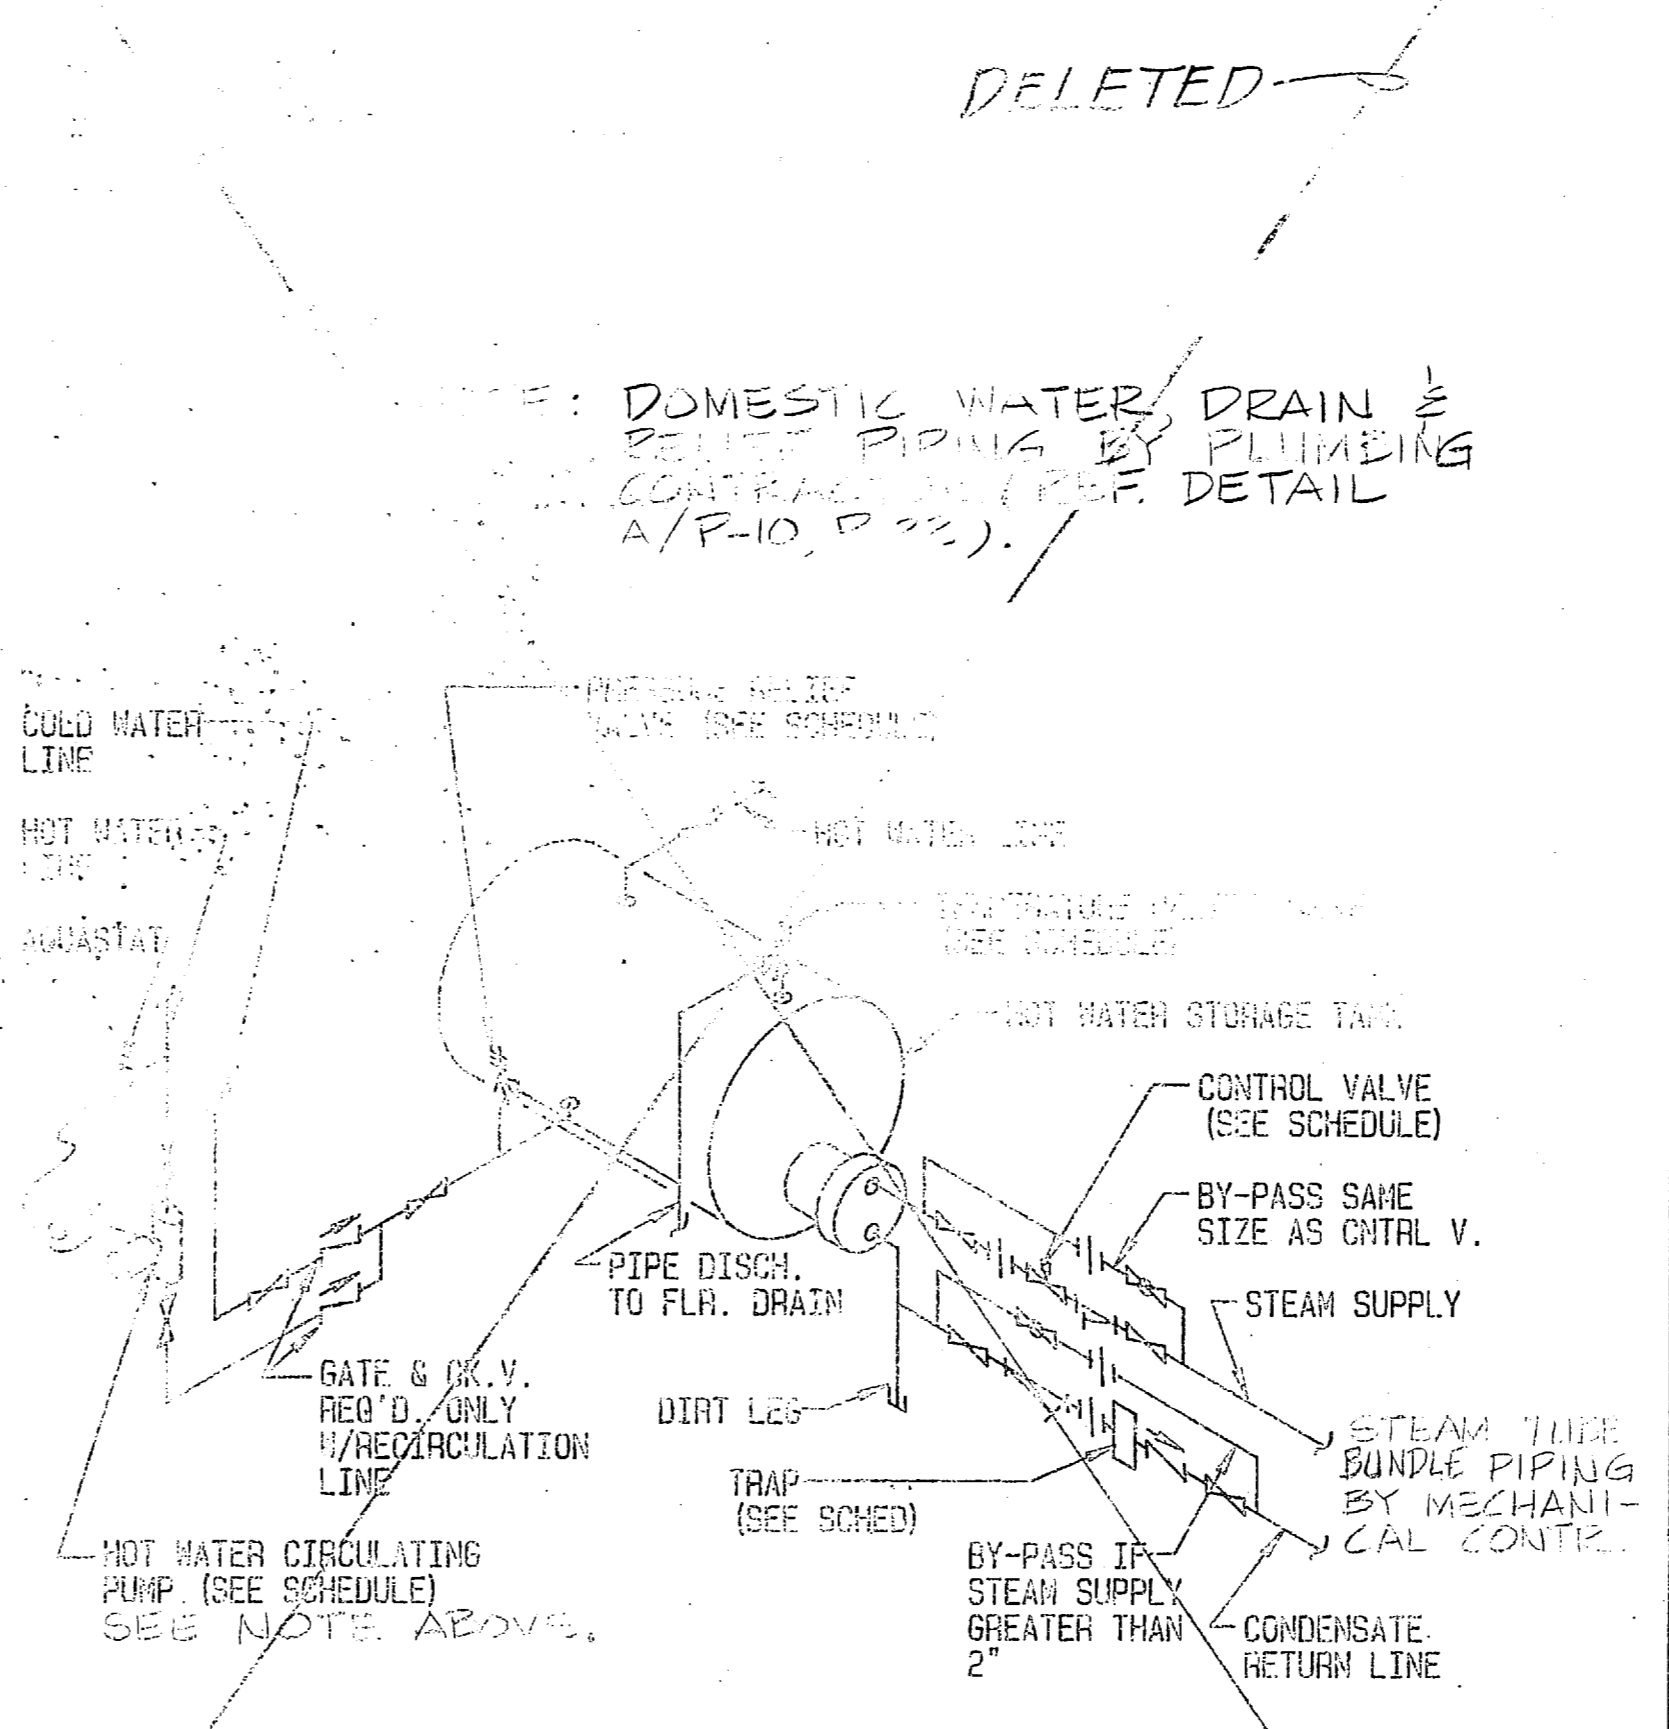 DELETED
: DOMESTIC WATER, DRAIN &
RELIEF PIPING BY PLUMBING
(REF. DETAIL
A/P-10,
COLD WATER
LINE
PRESSURE RELIEF
VALVE (SEE SCHEDULE)
HOT WATER
LINE
HOT WATER LINE
AQUASTAT
(SEE SCHEDULE)
HOT WATER STORAGE TANK
CONTROL VALVE
(SEE SCHEDULE)
BY-PASS SAME
SIZE AS CNTRL V.
STEAM SUPPLY
PIPE DISCH.
TO FLR. DRAIN
GATE & CK.V.
REQ'D. ONLY
W/RECIRCULATION
LINE
DIRT LEG
TRAP
(SEE SCHED)
STEAM TUBE
BUNDLE PIPING
BY MECHANI-
CAL CONTR.
HOT WATER CIRCULATING
PUMP. (SEE SCHEDULE)
SEE NOTE ABOVE.
BY-PASS IF
STEAM SUPPLY
GREATER THAN
2"
CONDENSATE
RETURN LINE